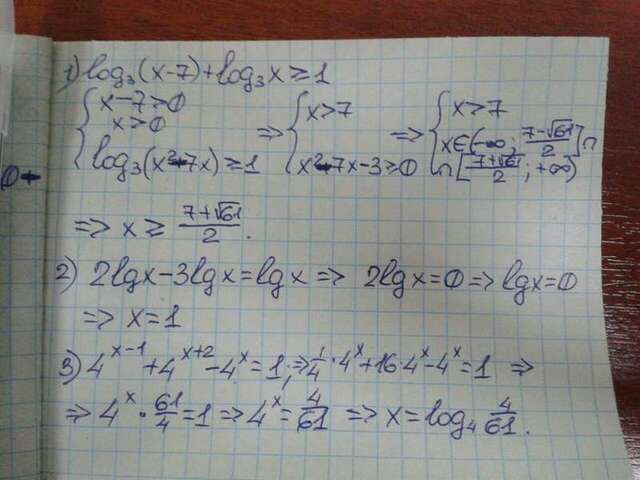 1) log₃(x-7)+log₃x≥1
{x-7>0 x>0 log₃(x²-7x)≥1 => {x>7 x²-7x-3≥0 => {x>7 x∈(-∞; (7-√61)/2]∩ ∩[(7+√61)/2; +∞)
=> x ≥ (7+√61)/2.
2) 2lgx-3lgx=lgx => 2lgx=0 => lgx=0
=> x=1
3) 4^(x-1)+4^(x+2)-4^x=1; => 1/4·4^x+16·4^x-4^x=1 =>
=> 4^x·61/4=1 => 4^x=4/61 => x=log₄ 4/61.